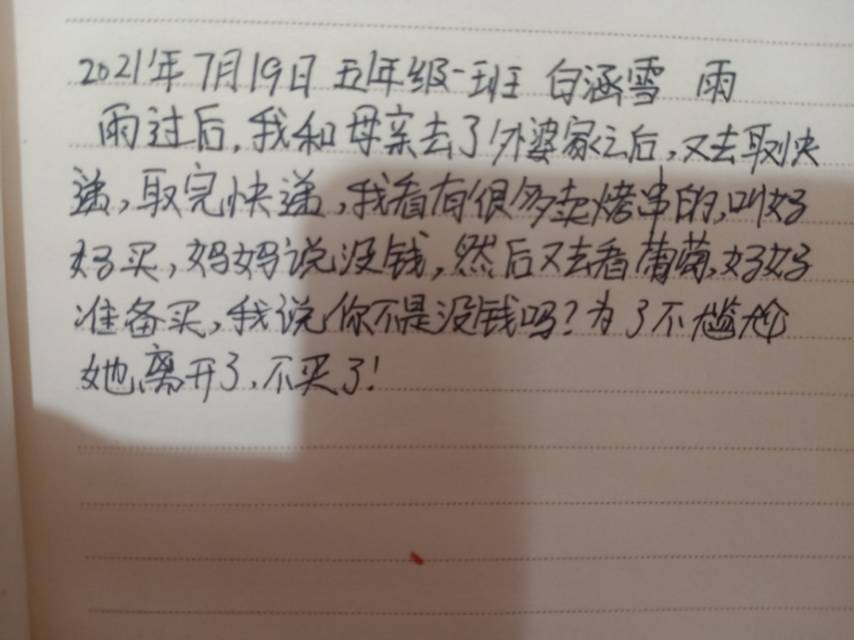 2021年7月19日 五年级一班 白涵雪 雨
雨过后,我和母亲去了外婆家之后,又去取快
递,取完快递,我看有很多卖烤串的,叫妈
妈买,妈妈说没钱,然后又去看葡萄,妈妈
准备买,我说你不是没钱吗?为了不尴尬
她离开了,不买了!